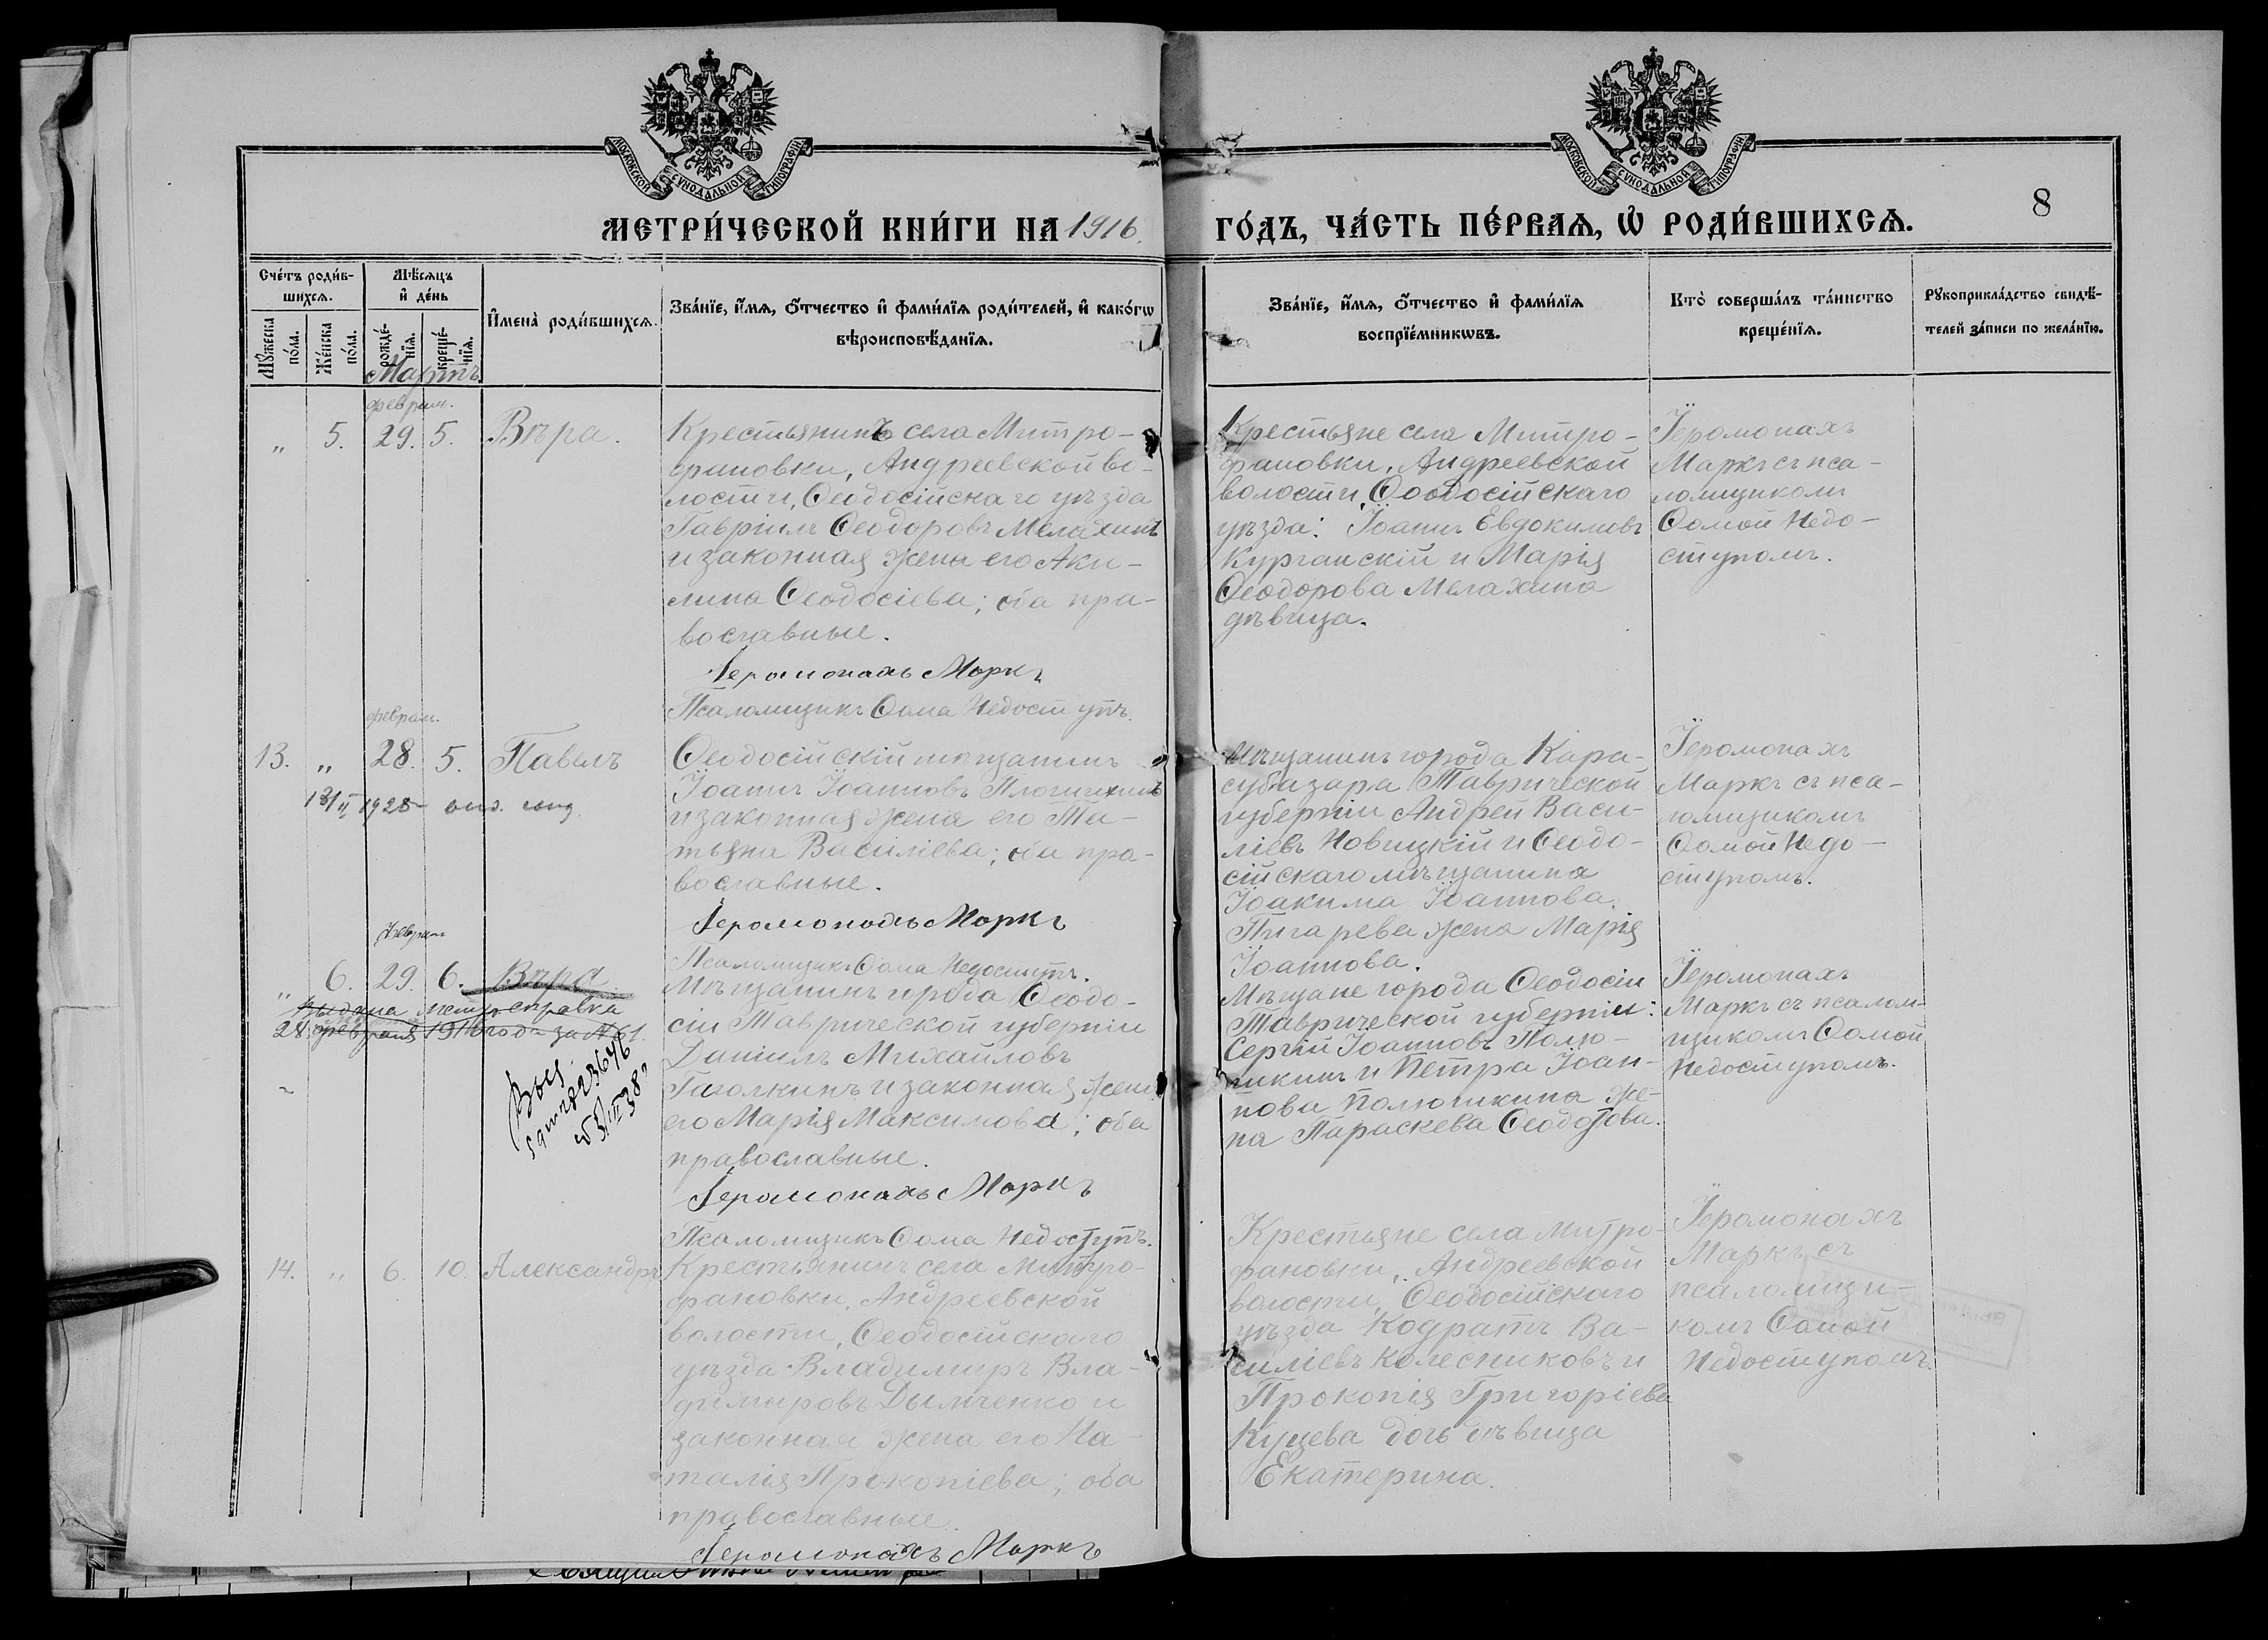 МОСКОВСКОЙ СѴНОДАЛЬНОЙ ТИПОГРАФІИ
МОСКОВСКОЙ СѴНОДАЛЬНОЙ ТИПОГРАФІИ
8
МЕТРИ́ЧЕСКОЙ КНИ́ГИ НА 1916. ГО́ДЪ, ЧА́СТЬ ПЕ́РВАѦ, Ѡ҆ РОДИ́ВШИХСѦ.
Сче́тъ роди́в-
шихсѧ.
Мꙋ́жеска
по́ла.
Же́нска
по́ла.
Мѣ́сѧцъ
и҆ де́нь
рожде́-
нїѧ.
креще́-
нїѧ.
И҆мена̀ роди́вшихсѧ.
Зва́нїе, и҆́мѧ, ѻ҆́тчество и҆ фами́лїѧ роди́телей, и҆ како́гѡ
вѣроисповѣ́данїѧ.
Зва́нїе, и҆́мѧ, ѻ҆́тчество и҆ фами́лїѧ
воспрїе́мникѡвъ.
Кто̀ соверша́лъ та́инство
креще́нїѧ.
Рꙋкоприкла́дство свидѣ́-
телей за́писи по жела́нїю.
Мартъ
феврал.
„ 5. 29. 5. Вѣра.
Крестьянинъ села Митро-
фановки, Андреевской во-
лости, Ѳеодосійскаго уѣзда
Гавріилъ Ѳеодоровъ Мелахинъ
и законная жена его Аки-
лина Ѳеодосіева; оба пра-
вославные.
Іеромонахъ Маркъ
Псаломщикъ Ѳома Недоступъ.
Крестьяне села Митро-
фановки, Андреевской
волости, Ѳеодосійскаго
уѣзда: Іоаннъ Евдокимовъ
Курганскій и Марія
Ѳеодорова Мелахина
дѣвица.
Іеромонахъ
Маркъ съ пса-
ломщикомъ
Ѳомой Недо-
ступомъ.
феврал.
13. „ 28. 5. Павелъ
1925
Ѳеодосійскій мѣщанинъ
Іоаннъ Іоанновъ
и законная жена его Та-
тьяна Василіева; оба пра-
вославные.
Іеромонахъ Маркъ
Псаломщикъ Ѳома Недоступъ.
Мѣщанинъ города Кара-
субазара Таврической
губерніи Андрей Васи-
ліевъ Новицкій и Ѳеодо-
сійскаго мѣщанина
Іоакима Іоаннова
Пигарева жена Марія
Іоаннова.
Іеромонахъ
Маркъ съ пса-
ломщикомъ
Ѳомой Недо-
ступомъ.
Феврал
„ 6. 29. 6. Вѣра
Выдана метр. справка
28 февраля 1916 года за № 61.
Мѣщанинъ города Ѳеодо-
сіи Таврической губерніи
Даніилъ Михайловъ
Гаголкинъ и законная жена
его Марія Максимова; оба
православные.
Іеромонахъ Маркъ
Псаломщикъ Ѳома Недоступъ.
Мѣщане города Ѳеодосіи
Таврической губерніи:
Сергій Іоанновъ Полю-
шкинъ и Петра Іоан-
нова Полюшкина же-
на Параскева Ѳеодотова.
Іеромонахъ
Маркъ съ псалом-
щикомъ Ѳомой
Недоступомъ.
14. „ 6. 10. Александръ
Крестьянинъ села Митро-
фановки, Андреевской
волости, Ѳеодосійскаго
уѣзда Владимиръ Вла-
димировъ Дымченко и
законная жена его На-
талія Прокопіева; оба
православные.
Іеромонахъ Маркъ
Крестьяне села Митро-
фановки, Андреевской
волости, Ѳеодосійскаго
уѣзда Кодратъ Ва-
силіевъ Колесниковъ и
Прокопія Григоріева
Куцева дочь дѣвица
Екатерина.
Іеромонахъ
Маркъ съ
псаломщи-
комъ Ѳомой
Недоступомъ.